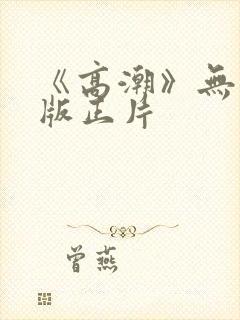 《高潮》無
版正片
曾燕